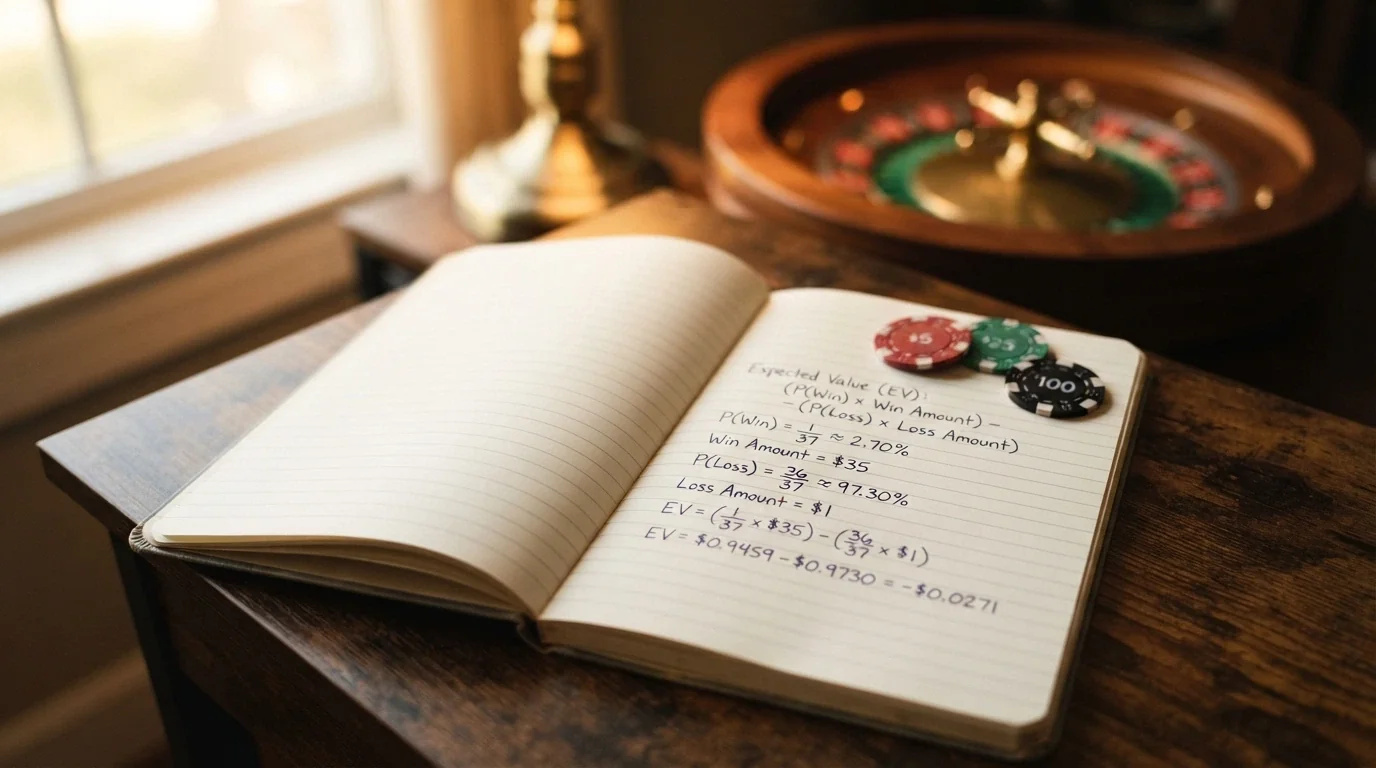 $5
$25
100
Expected Value (EV):
(P(Win) × Win Amount) –
– (P(Loss) × Loss Amount)
P(Win) = 1/37 ≈ 2.70%
Win Amount = $35
P(Loss) = 36/37 ≈ 97.30%
Loss Amount = $1
EV = (1/37 × $35) – (36/37 × $1)
EV = $0.9459 – $0.9730 = -$0.0271